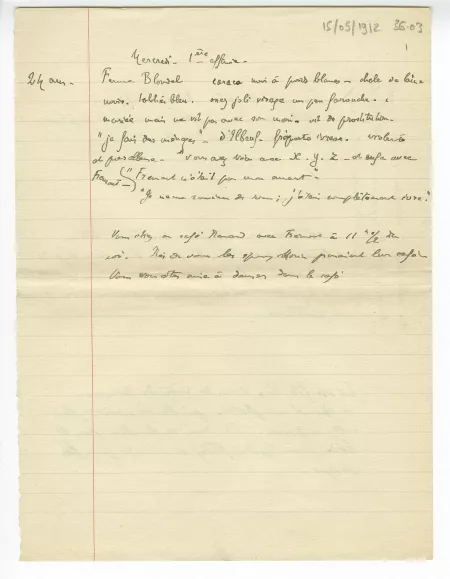 15/05/1912 36-03
1
Mercredi - 1ère affaire -
24 ans - Femme Blondel caraco noir à pois blancs - châle de laine
noire. tablier bleu. assez joli visage un peu farouche.
mariée mais ne vit pas avec son mari - vit de prostitution -
"je fais des ménages" - d'Elbeuf. fréquente ivresse. violente
et "vous avez vécu avec X. Y. Z - et enfin avec
Fremont - ("Fremont n'était pas mon amant" -
"Je me souviens de rien ; j'étais complètement ivre."
Vous étiez au café Renard avec Fremont à 11 h 1/2 du
soi. Près de vous les époux prenaient leur café
Vous vous êtes mise à danser dans le café